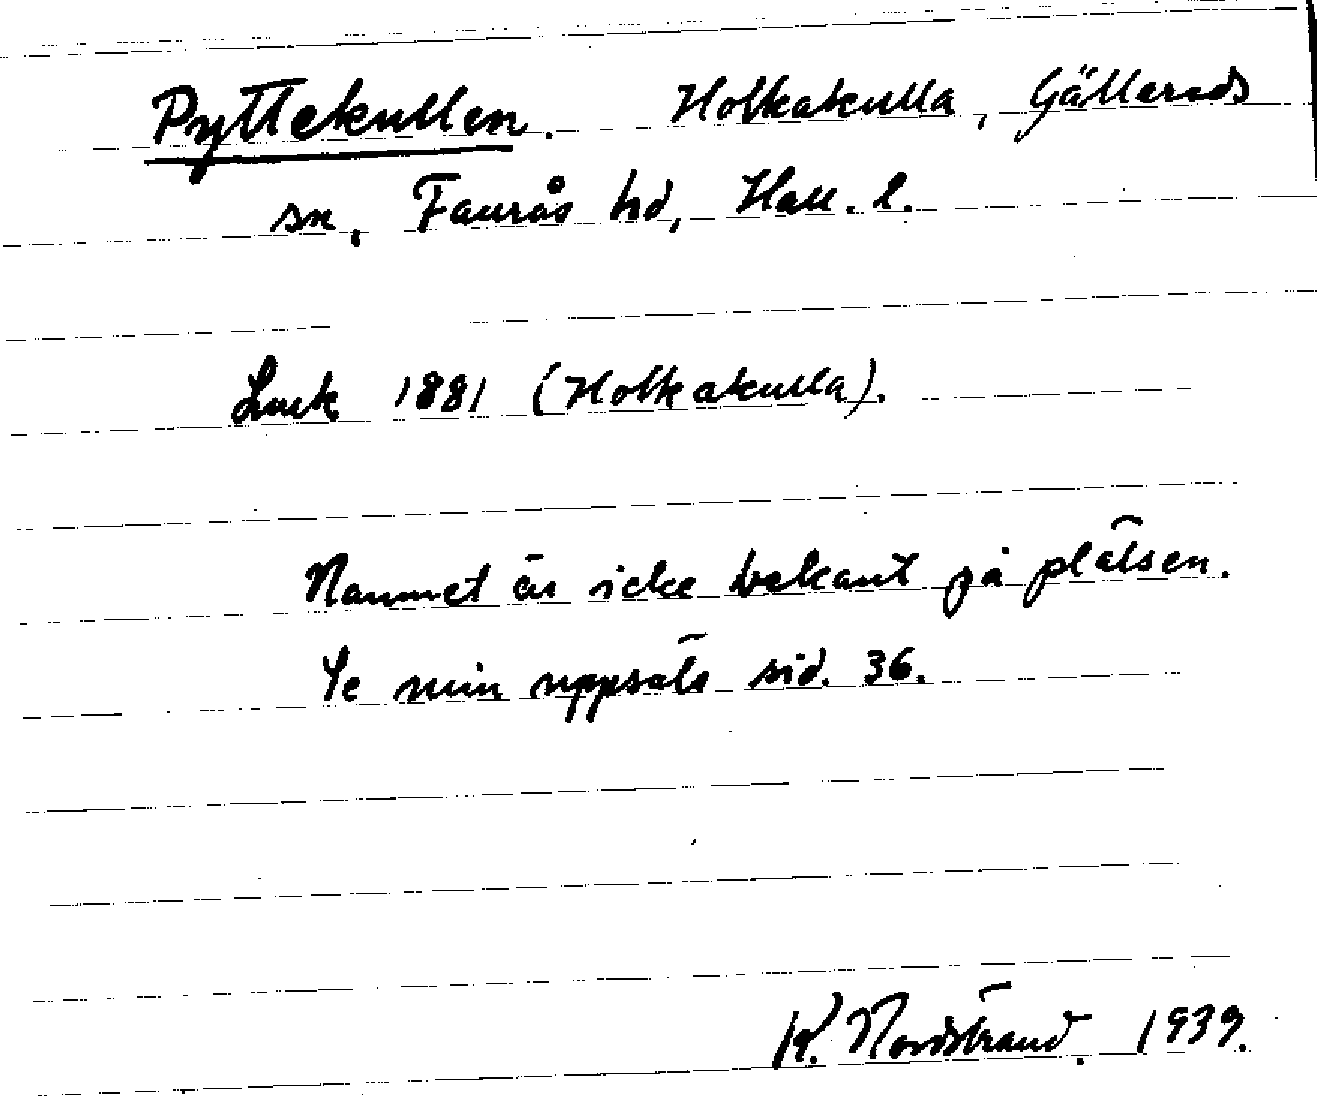 Pyttekullen. Holkakulla, Gällareds
sn, Faurås hd, Hall. l.
Lmk 1881 (Holkakulla).
Namnet är icke bekant på platsen.
Se min uppsats sid. 36.
K. Nordstrand. 1939.